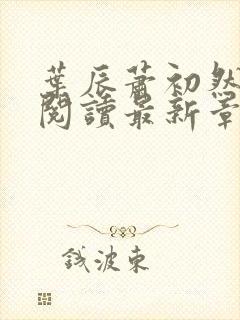 葉辰蕭初然
閱讀最新章
錢波東